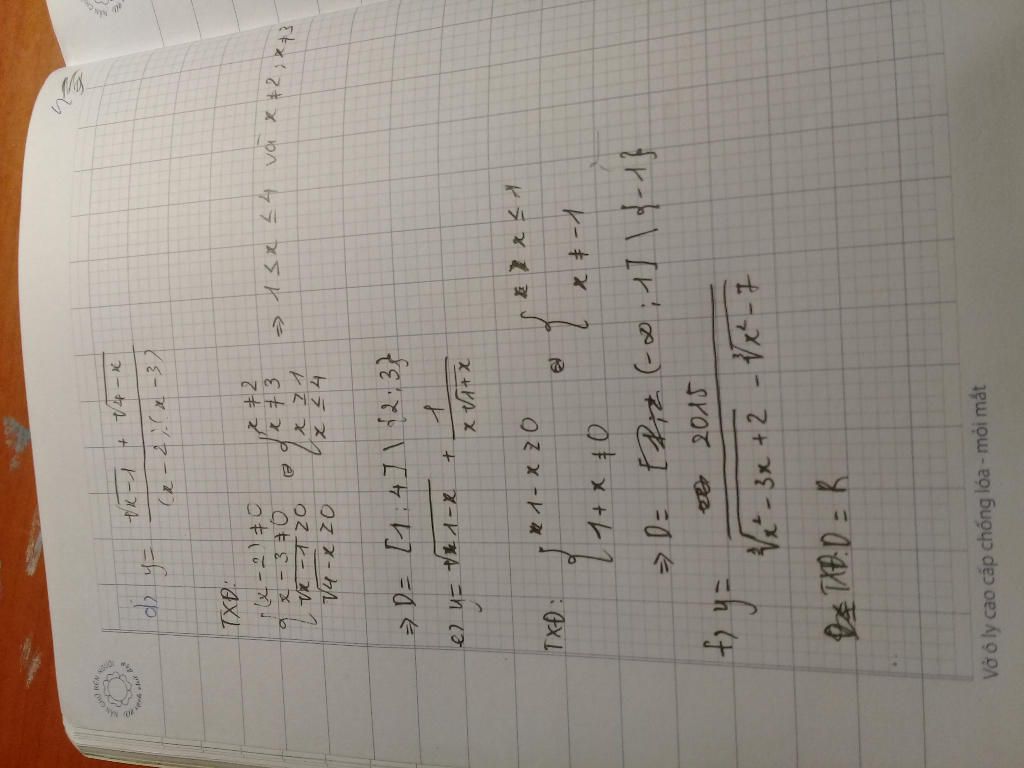 d) y = (√(x-1) + √(4-x)) / ((x-2)(x-3))
TXĐ:
{ (x-2) ≠ 0
x-3 ≠ 0
√x-1 ≥ 0
√4-x ≥ 0
⇔ { x ≠ 2
x ≠ 3
x ≥ 1
x ≤ 4
⇒ 1 ≤ x ≤ 4 và x ≠ 2, x ≠ 3
⇒ D = [1; 4] \ {2; 3}
e) y = √(1-x) + 1 / (x√(1+x))
TXĐ: { 1-x ≥ 0
1+x ≠ 0
⇔ { x ≤ 1
x ≠ -1
⇒ D = (-∞; 1] \ {-1}
f) y = 2015 / (∛(x²-3x+2) - ∛(x²-7))
TXĐ: D = R
Vở ô ly cao cấp chống lóa - mỏi mắt